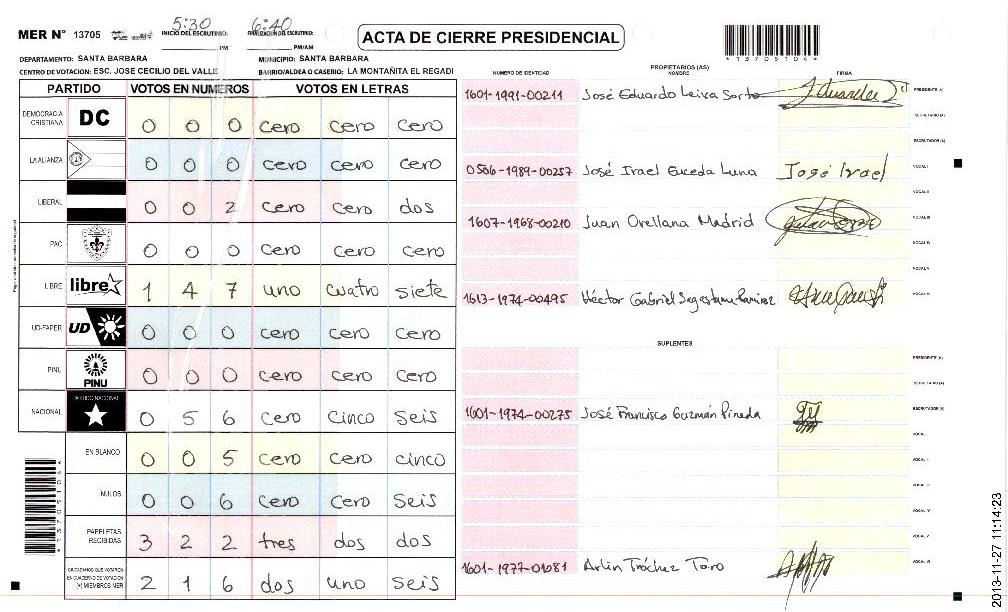 MER N° 13705 5:30 INICIO DEL ESCRUTINIO: PM 6:40 FINALIZACION DEL ESCRUTINIO: PM/AM ACTA DE CIERRE PRESIDENCIAL
DEPARTAMENTO: SANTA BARBARA MUNICIPIO: SANTA BARBARA
CENTRO DE VOTACION: ESC. JOSE CECILIO DEL VALLE BARRIO/ALDEA O CASERIO: LA MONTAÑITA EL REGADI
*13705104*
PARTIDO VOTOS EN NUMEROS VOTOS EN LETRAS
DEMOCRACIA CRISTIANA DC 0 0 0 cero cero cero
LA ALIANZA 0 0 0 cero cero cero
LIBERAL 0 0 2 cero cero dos
PAC 0 0 0 cero cero cero
LIBRE libre 1 4 7 uno cuatro siete
UD-FAPER UD 0 0 0 cero cero cero
PINU PINU 0 0 0 cero cero cero
NACIONAL PARTIDO NACIONAL 0 5 6 cero cinco seis
EN BLANCO 0 0 5 cero cero cinco
NULOS 0 0 6 cero cero seis
PAPELETAS RECIBIDAS 3 2 2 tres dos dos
CIUDADANOS QUE VOTARON EN CUADERNO DE VOTACION (+) MIEMBROS MER 2 1 6 dos uno seis
*13705104*
PROPIETARIOS (AS)
NUMERO DE IDENTIDAD NOMBRE FIRMA
1601-1991-00211 José Eduardo Leiva PRESIDENTE (A)
SECRETARIO (A)
ESCRUTADOR (A)
0506-1989-00257 José Irael Euceda Luna José Irael VOCAL I
VOCAL II
1607-1968-00210 Juan Orellana Madrid VOCAL III
VOCAL IV
VOCAL V
1613-1974-00495 Héctor Gabriel Ramirez VOCAL VI
SUPLENTES
PRESIDENTE (A)
SECRETARIO (A)
1601-1974-00275 José Francisco Guzmán Pineda ESCRUTADOR (A)
VOCAL I
VOCAL II
VOCAL III
VOCAL IV
VOCAL V
1601-1977-01081 Arlin Tróchez Toro VOCAL VI
2013-11-27 11:14:23